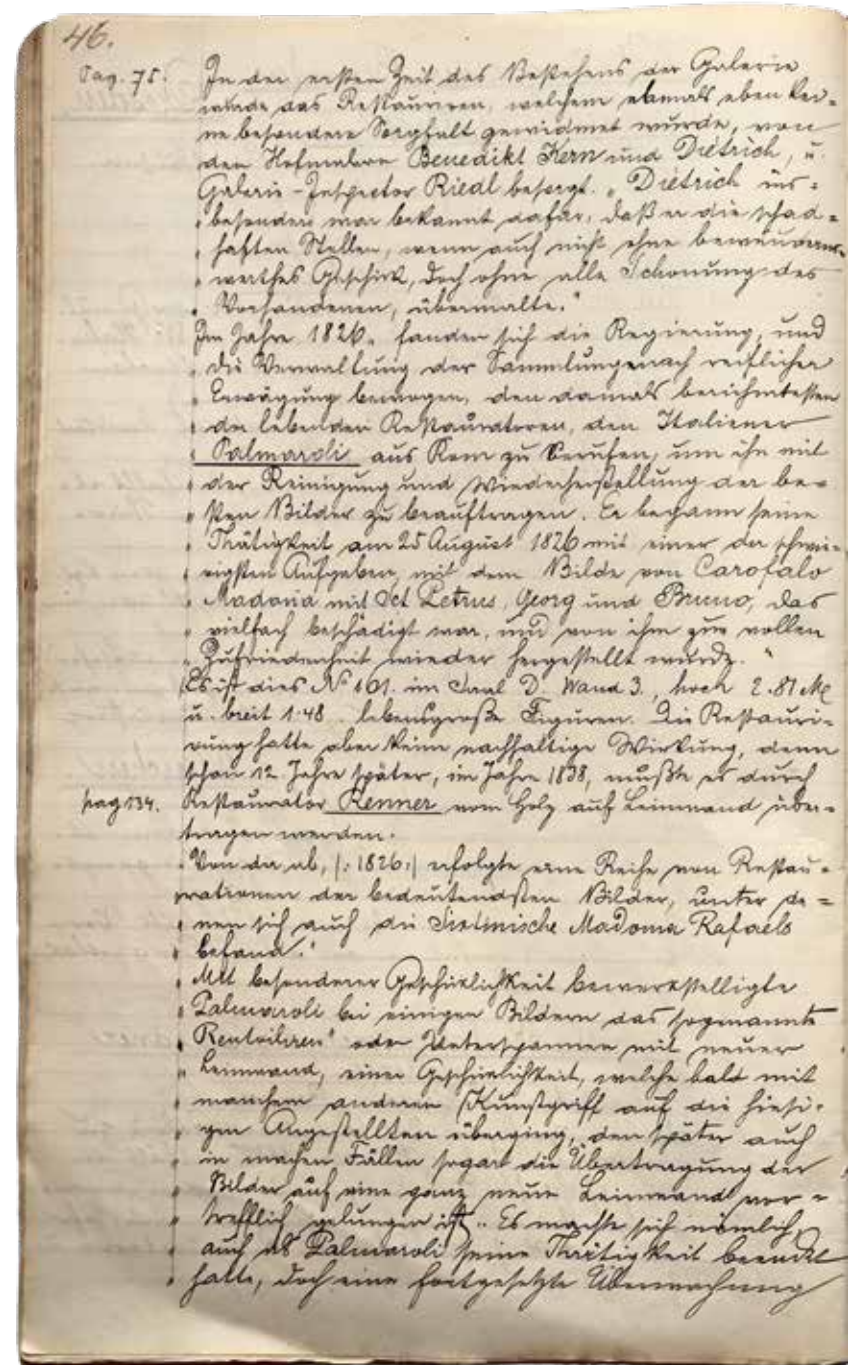 46.
Pag. 75.
In der ersten Zeit des Bestehens der Galerie
wurde das Restauriren, welchem damals eben kei-
ne besondere Sorgfalt gewidmet wurde, von
den Hofmalern Benedikt Kern und Dietrich, u.
Galerie-Inspector Riedl besorgt. „Dietrich ins-
„besondere war bekannt dafür, daß er die schad-
„haften Stellen, wenn auch nicht ohne bewunderns-
„werthes Geschick, doch ohne alle Schonung des
„Vorhandenen, übermalte."
Im Jahre 1826. fanden sich die Regierung, und
„die Verwaltung der Sammlungen nach reiflicher
„Erwägung bewogen, den damals berühmtesten
„der lebenden Restauratoren, den Italiener
„Palmaroli aus Rom zu berufen, um ihn mit
„der Reinigung und Wiederherstellung der be-
„sten Bilder zu beauftragen. Er begann seine
„Thätigkeit am 25 August 1826 mit einer der schwie-
„rigsten Aufgaben, mit dem Bilde von Carofalo
„Madonna mit Sct Petrus, Georg und Bruno, das
„vielfach beschädigt war, und von ihm zur vollen
„Zufriedenheit wieder hergestellt wurde."
Es ist dies No 101. im Saal D. Wand 3., hoch 2.81 M
u. breit 1.48. lebensgroße Figuren. Die Restauri-
rung hatte aber keine nachhaltige Wirkung, denn
schon 12 Jahre später, im Jahre 1838, mußte es durch
pag 134.
Restaurator Renner vom Holz auf Leinwand über-
tragen werden.
„Von da, ab, /: 1826:/ erfolgte eine Reihe von Restau-
rationen der bedeutendsten Bilder, unter de-
„nen sich auch die Sixtinische Madonna Rafaels
„befand."
„Mit besonderer Geschicklichkeit bewerkstelligte
„Palmaroli bei einigen Bildern das sogenannte
„Rentoiliren" oder Unterspannen mit neuer
„Leinwand, einer Geschicklichkeit, welche bald mit
„manchem anderen Kunstgriff auf die hiesi-
„gen Angestellten überging, den später auch
„in machen Fällen sogar die Übertragung der
„Bilder auf eine ganz neue Leinwand vor-
„trefflich gelungen ist. Es machte sich nämlich,
„auch als Palmaroli seine Thätigkeit beendet
„hatte, doch eine fortgesetzte Überwachung